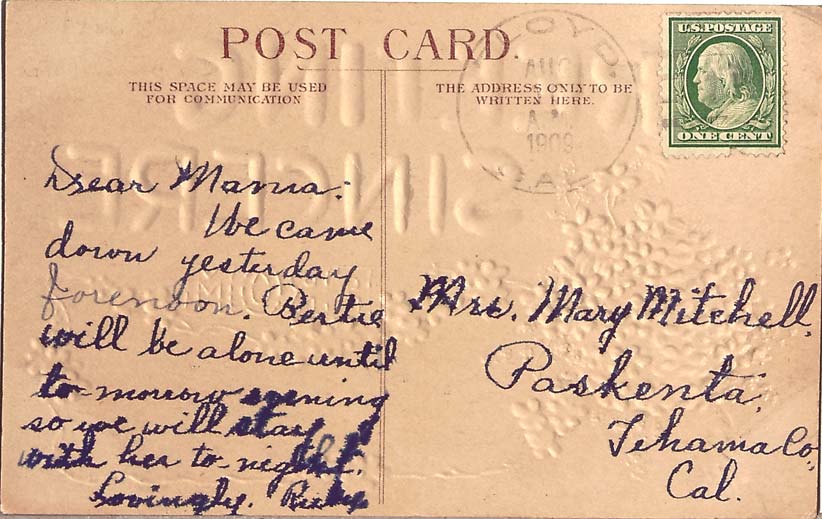 POST CARD.
THIS SPACE MAY BE USED
FOR COMMUNICATION
THE ADDRESS ONLY TO BE
WRITTEN HERE.
U.S. POSTAGE
ONE CENT
LOYD.
AUG
A.M.
1909
CAL.
SINCERE
Dear Mama:
We came
down yesterday
forenoon. Bertie
will be alone until
to-morrow evening
so we will stay
with her to-night.
Lovingly. Ruby
Mrs. Mary Mitchell,
Paskenta,
Tehama Co,
Cal.